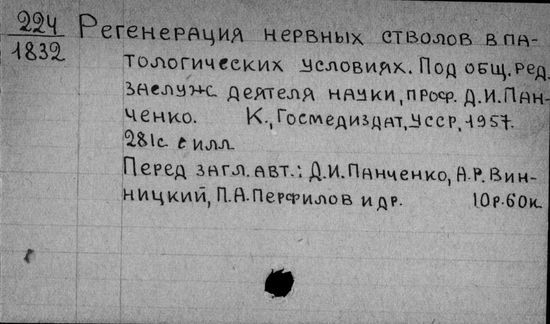 224
1832
Регенерация нервных стволов в па-
тологических условиях. Под общ. ред.
заслуж. деятеля науки, проф. Д.И. Пан-
ченко. К., Госмедиздат, УССР, 1957.
281с. с илл.
Перед загл. авт.: Д.И. Панченко, А.Р. Вин-
ницкий, П.А. Перфилов и др. 10р. 60к.